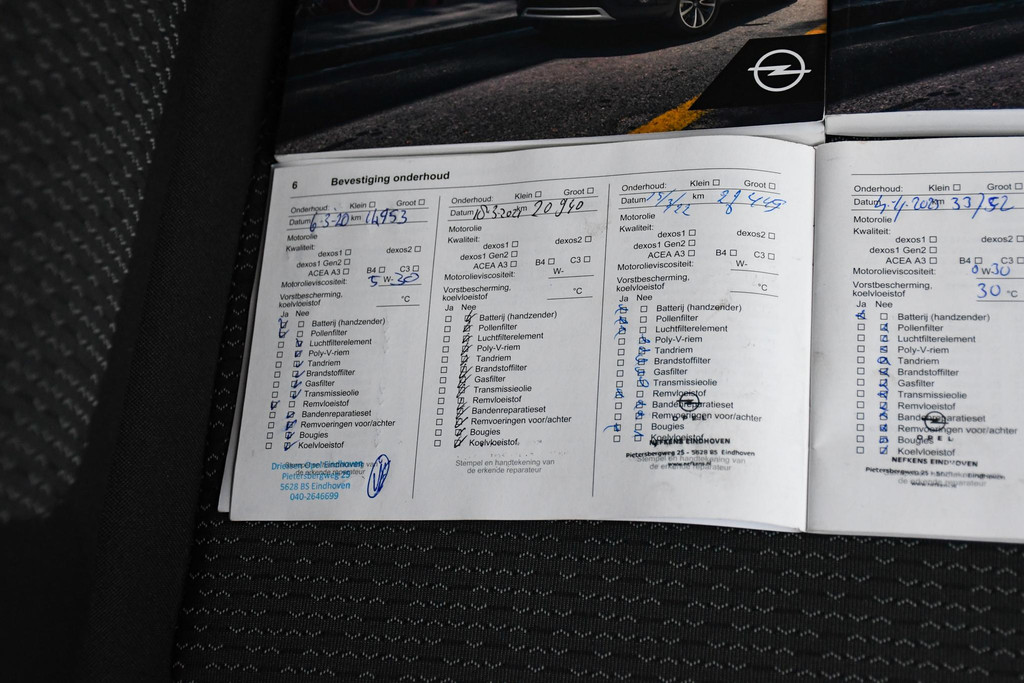 6 Bevestiging onderhoud
Onderhoud: Klein ☐ Groot ☐
Datum 6-3-20 km 14953
Motorolie
Kwaliteit:
dexos1 ☐ dexos2 ☐
dexos1 Gen2 ☐
ACEA A3 ☐ B4 ☐ C3 ☐
Motorolieviscositeit: 5 W-30
Vorstbescherming,
koelvloeistof °C
Ja Nee
Batterij (handzender)
Pollenfilter
Luchtfilterelement
Poly-V-riem
Tandriem
Brandstoffilter
Gasfilter
Transmissieolie
Remvloeistof
Bandenreparatieset
Remvoeringen voor/achter
Bougies
Koelvloeistof
Driessen Opel Eindhoven
Pietersbergweg 25
5628 BS Eindhoven
040-2646699
Onderhoud: Klein ☐ Groot ☐
Datum km 20940
Motorolie
Kwaliteit:
dexos1 ☐ dexos2 ☐
dexos1 Gen2 ☐
ACEA A3 ☐ B4 ☐ C3 ☐
Motorolieviscositeit: W-
Vorstbescherming,
koelvloeistof °C
Ja Nee
Batterij (handzender)
Pollenfilter
Luchtfilterelement
Poly-V-riem
Tandriem
Brandstoffilter
Gasfilter
Transmissieolie
Remvloeistof
Bandenreparatieset
Remvoeringen voor/achter
Bougies
Koelvloeistof
Stempel en handtekening van
de erkende reparateur
Onderhoud: Klein ☐ Groot ☐
Datum km
Motorolie
Kwaliteit:
dexos1 ☐ dexos2 ☐
dexos1 Gen2 ☐
ACEA A3 ☐ B4 ☐ C3 ☐
Motorolieviscositeit: W-
Vorstbescherming,
koelvloeistof °C
Ja Nee
Batterij (handzender)
Pollenfilter
Luchtfilterelement
Poly-V-riem
Tandriem
Brandstoffilter
Gasfilter
Transmissieolie
Remvloeistof
Bandenreparatieset
Remvoeringen voor/achter
Bougies
Koelvloeistof
OPEL
NEFKENS EINDHOVEN
Pietersbergweg 25 - 5628 BS Eindhoven
www.nefkens.nl
Stempel en handtekening van
de erkende reparateur
Onderhoud: Klein ☐ Groot ☐
Datum km 33152
Motorolie
Kwaliteit:
dexos1 ☐ dexos2 ☐
dexos1 Gen2 ☐
ACEA A3 ☐ B4 ☐ C3 ☐
Motorolieviscositeit: 0 W-30
Vorstbescherming,
koelvloeistof 30 °C
Ja Nee
Batterij (handzender)
Pollenfilter
Luchtfilterelement
Poly-V-riem
Tandriem
Brandstoffilter
Gasfilter
Transmissieolie
Remvloeistof
Bandenreparatieset
Remvoeringen voor/achter
Bougies
Koelvloeistof
OPEL
NEFKENS EINDHOVEN